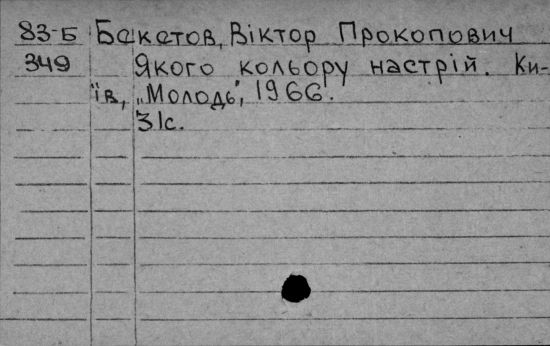 83-Б Бакатов, Віктор Прокопович
349 Якого кольору настрій. Ки-
їв, „Молодь", 1966.
31с.